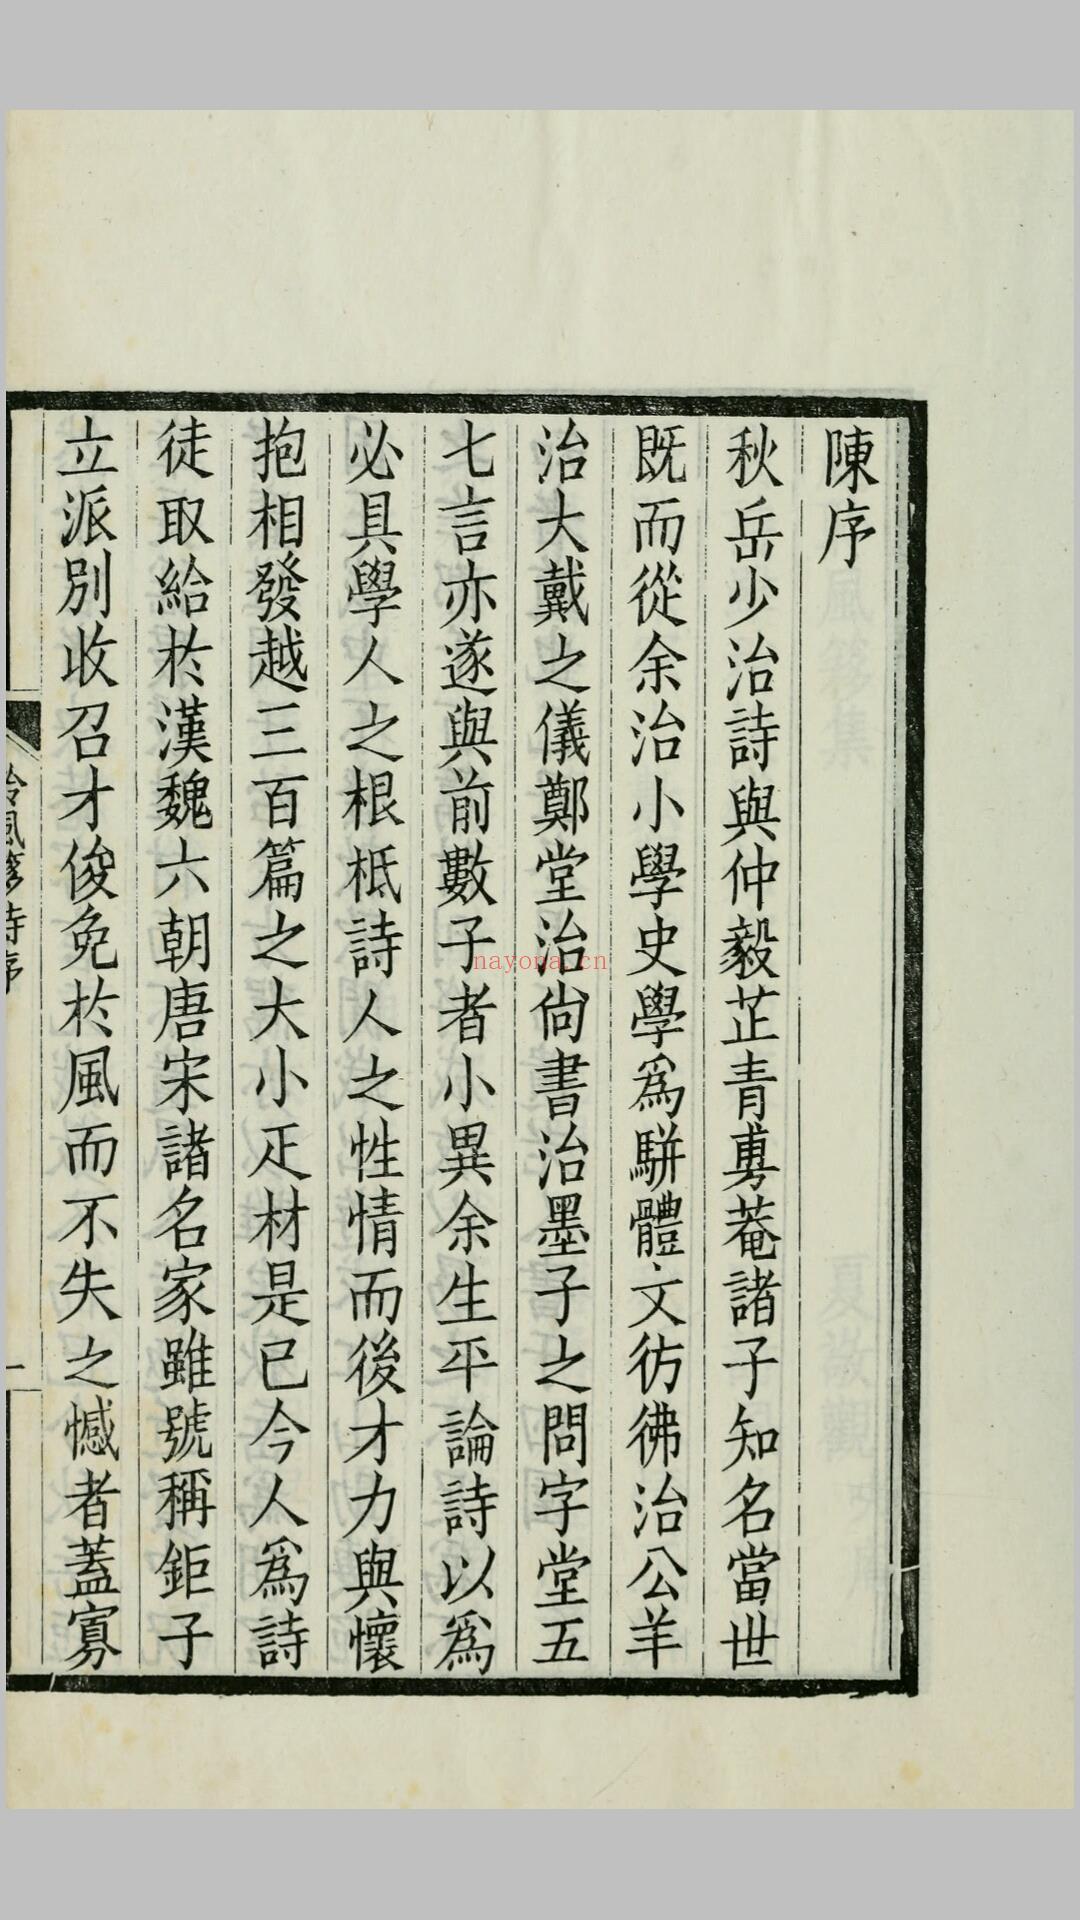 陳序
秋岳少治詩與仲毅芷青𠷎菴諸子知名當世
既而從余治小學史學爲駢體文彷彿治公羊
治大戴之儀鄭堂治尙書治墨子之問字堂五
七言亦遂與前數子者小異余生平論詩以爲
必具學人之根柢詩人之性情而後才力與懷
抱相發越三百篇之大小疋材是已今人爲詩
徒取給於漢魏六朝唐宋諸名家雖號稱鉅子
立派別收召才俊免於風而不失之憾者蓋寡
風簃詩序
一
nayona.cn